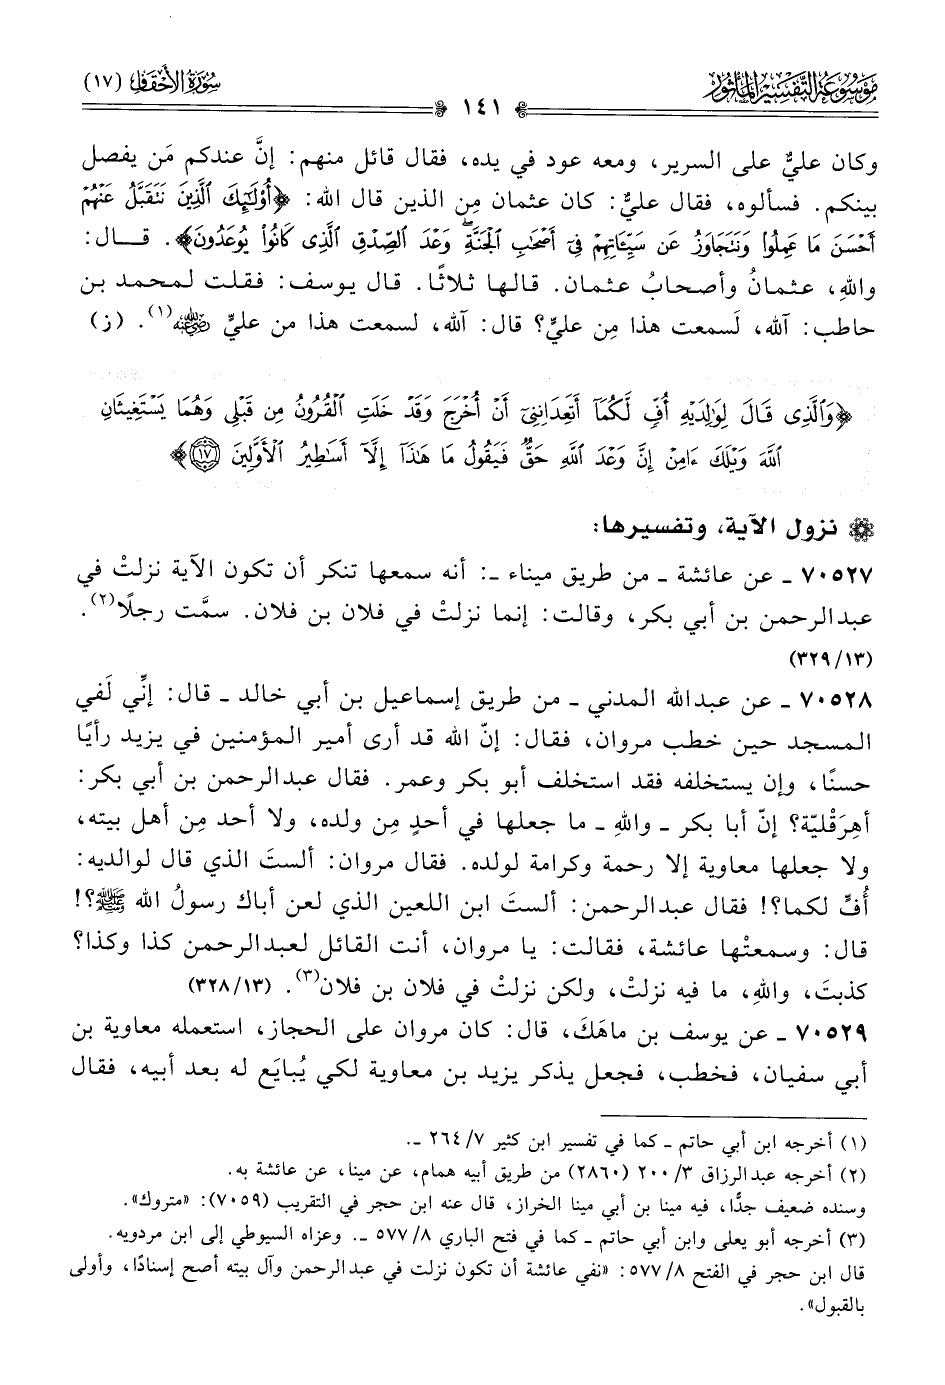 موسوعة التفسير المأثور
١٤١
سورة الأحقاف (١٧)
وكان عليٌّ على السرير، ومعه عود في يده، فقال قائل منهم: إنَّ عندكم مَن يفصل
بينكم. فسألوه، فقال عليٌّ: كان عثمان مِن الذين قال الله: ﴿أُوْلَٰٓئِكَ ٱلَّذِينَ نَتَقَبَّلُ عَنْهُمْ
أَحْسَنَ مَا عَمِلُواْ وَنَتَجَاوَزُ عَن سَيِّـَٔاتِهِمْ فِىٓ أَصْحَٰبِ ٱلْجَنَّةِۖ وَعْدَ ٱلصِّدْقِ ٱلَّذِى كَانُواْ يُوعَدُونَ﴾. قـال:
واللهِ، عثمانُ وأصحابُ عثمان. قالها ثلاثًا. قال يوسف: فقلت لمحمد بن
حاطب: آلله، لَسمعت هذا مِن عليٍّ؟ قال: آلله، لسمعت هذا من عليٍّ رضي الله عنه(١). (ز)
﴿وَٱلَّذِى قَالَ لِوَٰلِدَيْهِ أُفٍّ لَّكُمَآ أَتَعِدَانِنِىٓ أَنْ أُخْرَجَ وَقَدْ خَلَتِ ٱلْقُرُونُ مِن قَبْلِى وَهُمَا يَسْتَغِيثَانِ
ٱللَّهَ وَيْلَكَ ءَامِنْ إِنَّ وَعْدَ ٱللَّهِ حَقٌّ فَيَقُولُ مَا هَٰذَآ إِلَّآ أَسَٰطِيرُ ٱلْأَوَّلِينَ ١٧﴾
نزول الآية، وتفسيرها:
٧٠٥٢٧ ـ عن عائشة ـ من طريق ميناء ـ: أنه سمعها تنكر أن تكون الآية نزلتْ في
عبدالرحمن بن أبي بكر، وقالت: إنما نزلتْ في فلان بن فلان. سمَّت رجلًا(٢).
(١٣/ ٣٢٩)
٧٠٥٢٨ ـ عن عبدالله المدني ـ من طريق إسماعيل بن أبي خالد ـ قال: إنِّي لَفي
المسجد حين خطب مروان، فقال: إنّ الله قد أرى أمير المؤمنين في يزيد رأيًا
حسنًا، وإن يستخلفه فقد استخلف أبو بكر وعمر. فقال عبدالرحمن بن أبي بكر:
أهِرَقْليّة؟ إنّ أبا بكر ـ واللهِ ـ ما جعلها في أحدٍ مِن ولده، ولا أحد مِن أهل بيته،
ولا جعلها معاوية إلا رحمة وكرامة لولده. فقال مروان: ألستَ الذي قال لوالديه:
أُفٍّ لكما؟! فقال عبدالرحمن: ألستَ ابن اللعين الذي لعن أباك رسولُ الله ﷺ؟!
قال: وسمعتْها عائشة، فقالت: يا مروان، أنت القائل لعبدالرحمن كذا وكذا؟
كذبتَ، واللهِ، ما فيه نزلتْ، ولكن نزلتْ في فلان بن فلان(٣). (١٣/ ٣٢٨)
٧٠٥٢٩ ـ عن يوسف بن ماهَكَ، قال: كان مروان على الحجاز، استعمله معاوية بن
أبي سفيان، فخطب، فجعل يذكر يزيد بن معاوية لكي يُبايَع له بعد أبيه، فقال
(١) أخرجه ابن أبي حاتم ـ كما في تفسير ابن كثير ٧/ ٢٦٤ ـ.
(٢) أخرجه عبدالرزاق ٣/ ٢٠٠ (٢٨٦٠) من طريق أبيه همام، عن مينا، عن عائشة به.
وسنده ضعيف جدًّا، فيه مينا بن أبي مينا الخراز، قال عنه ابن حجر في التقريب (٧٠٥٩): «متروك».
(٣) أخرجه أبو يعلى وابن أبي حاتم ـ كما في فتح الباري ٨/ ٥٧٧ ـ. وعزاه السيوطي إلى ابن مردويه.
قال ابن حجر في الفتح ٨/ ٥٧٧: «نفي عائشة أن تكون نزلت في عبدالرحمن وآل بيته أصح إسنادًا، وأولى
بالقبول».